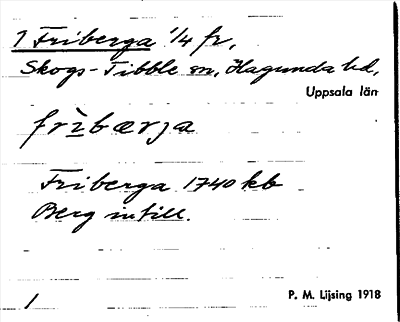 1 Friberga 1/4 fr,
Skogs-Tibble sn, Hagunda hd,
Uppsala län
frìbærja
Friberga 1740 kb
Berg intill.
P. M. Lijsing 1918
1